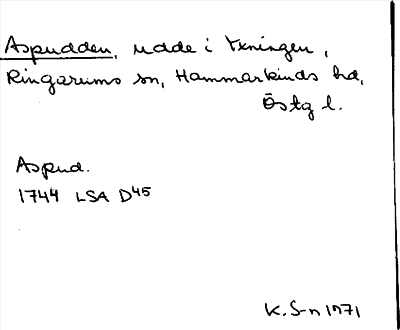 Aspudden, udde i Yxningen,
Ringarums sn, Hammarkinds hd,
Östg l.
Aspud.
1744 LSA D45
K. S-n 1971